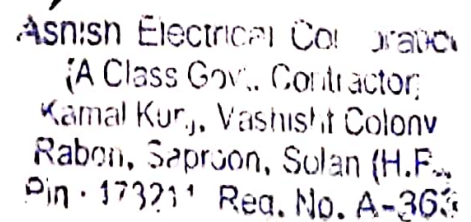 Ashish Electrical
(A Class Govt. Contractor)
Kamal Kunj, Vashisht Colony
Rabon, Saproon, Solan (H.P.)
Pin - 173211 Reg. No. A-363